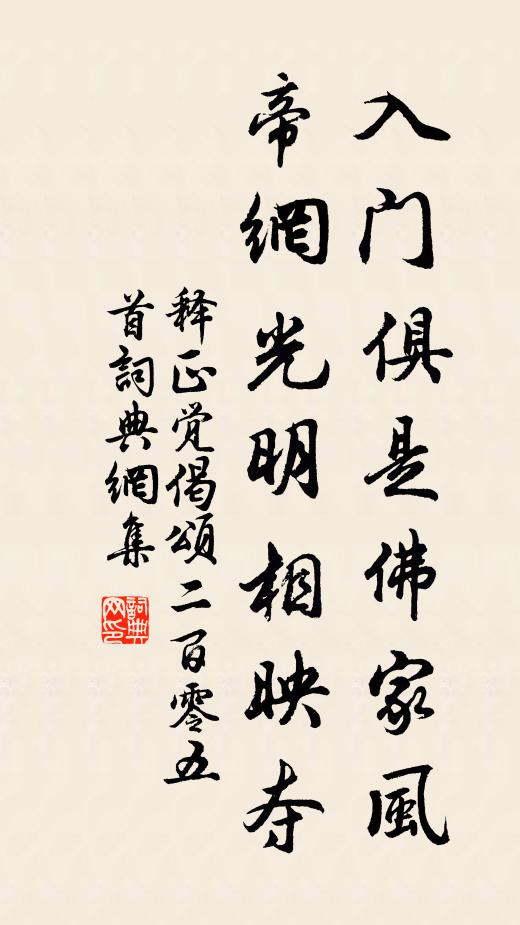 入门俱是佛家風
帝網光明相映夺
释正觉偈頌二百零五
首詞典網集
詞典
网印